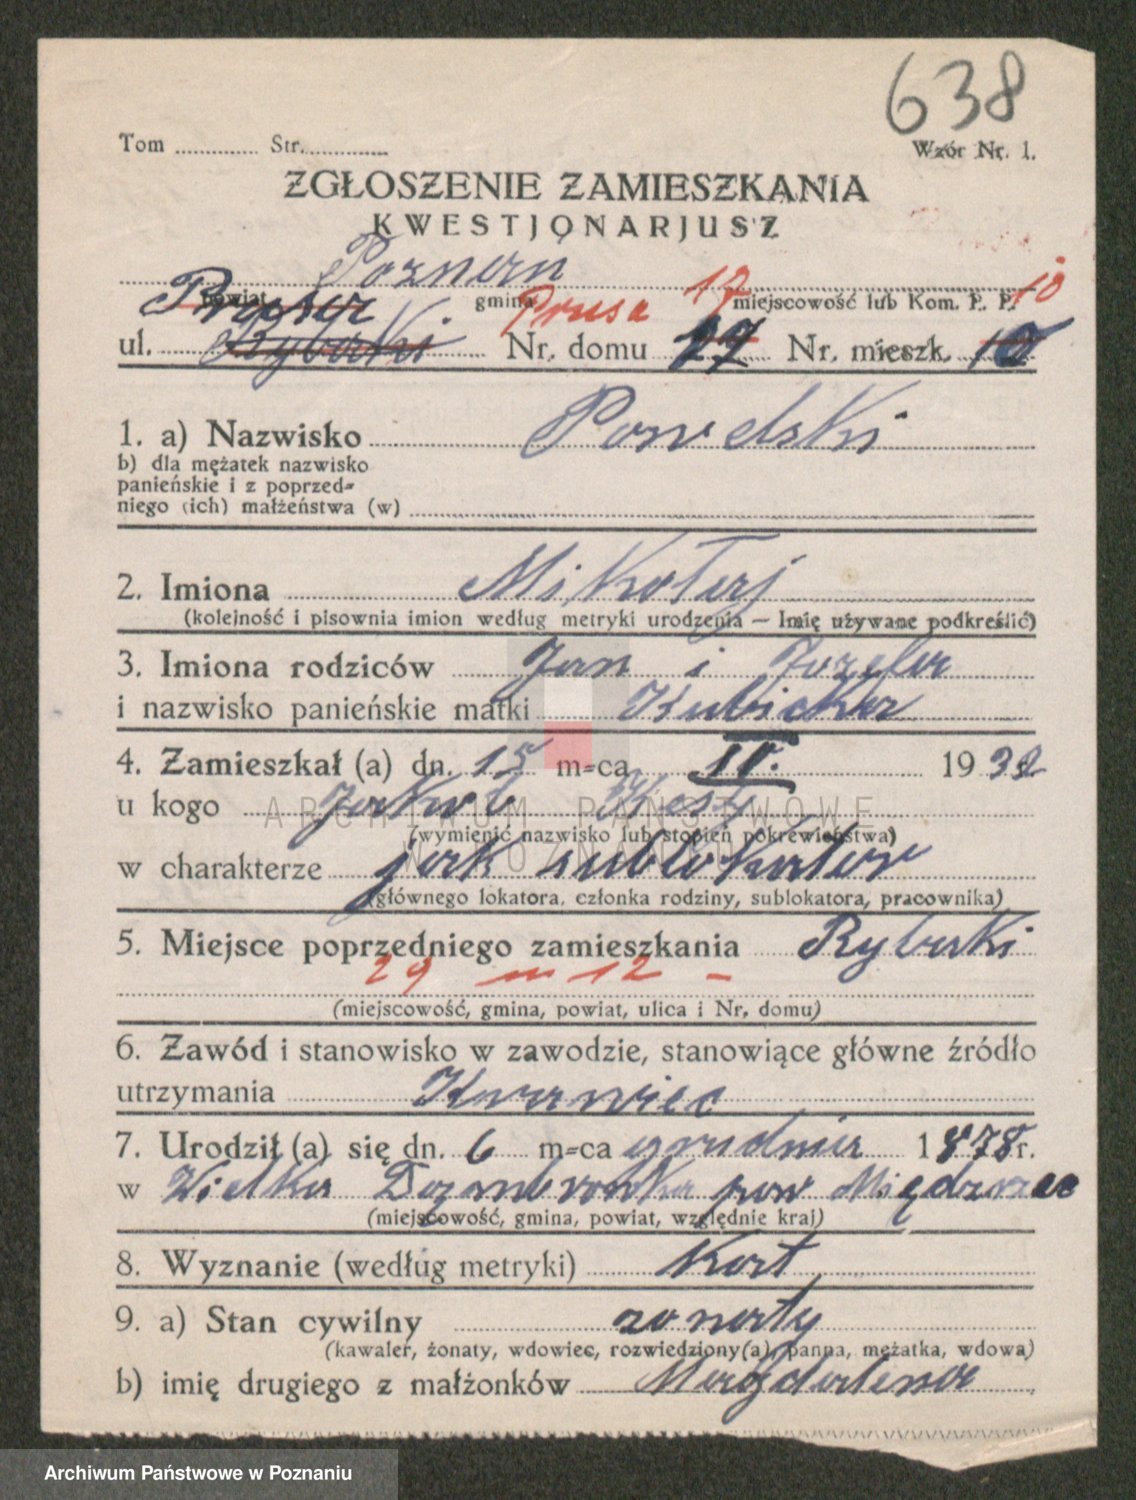 638
Tom ............ Str. ............
Wzór Nr. 1.
ZGŁOSZENIE ZAMIESZKANIA
KWESTJONARJUSZ
Poznan
powiat gmina miejscowość lub Kom. P. P.
Prusa 17 10
ul. Rybaki Nr. domu 27 Nr. mieszk. 10
1. a) Nazwisko Pawelski
b) dla mężatek nazwisko
panieńskie i z poprzed-
niego (ich) małżeństwa (w)
2. Imiona Mikołaj
(kolejność i pisownia imion według metryki urodzenia — Imię używane podkreślić)
3. Imiona rodziców Jan i Jozefa
i nazwisko panieńskie matki Kubicka
4. Zamieszkał (a) dn. 15 m-ca IV. 1932
u kogo Jakub
(wymienić nazwisko lub stopień pokrewieństwa)
w charakterze jak sublokator
(głównego lokatora, członka rodziny, sublokatora, pracownika)
5. Miejsce poprzedniego zamieszkania Rybaki
29 m 12 –
(miejscowość, gmina, powiat, ulica i Nr. domu)
6. Zawód i stanowisko w zawodzie, stanowiące główne źródło
utrzymania Krawiec
7. Urodził (a) się dn. 6 m-ca grudnia 1878 r.
w Wielka Dombrowka pow Międzrzec
(miejscowość, gmina, powiat, względnie kraj)
8. Wyznanie (według metryki) Kat
9. a) Stan cywilny zonaty
(kawaler, żonaty, wdowiec, rozwiedziony(a), panna, mężatka, wdowa)
b) imię drugiego z małżonków Magdalena
ARCHIWUM PAŃSTWOWE
W POZNANIU
Archiwum Państwowe w Poznaniu